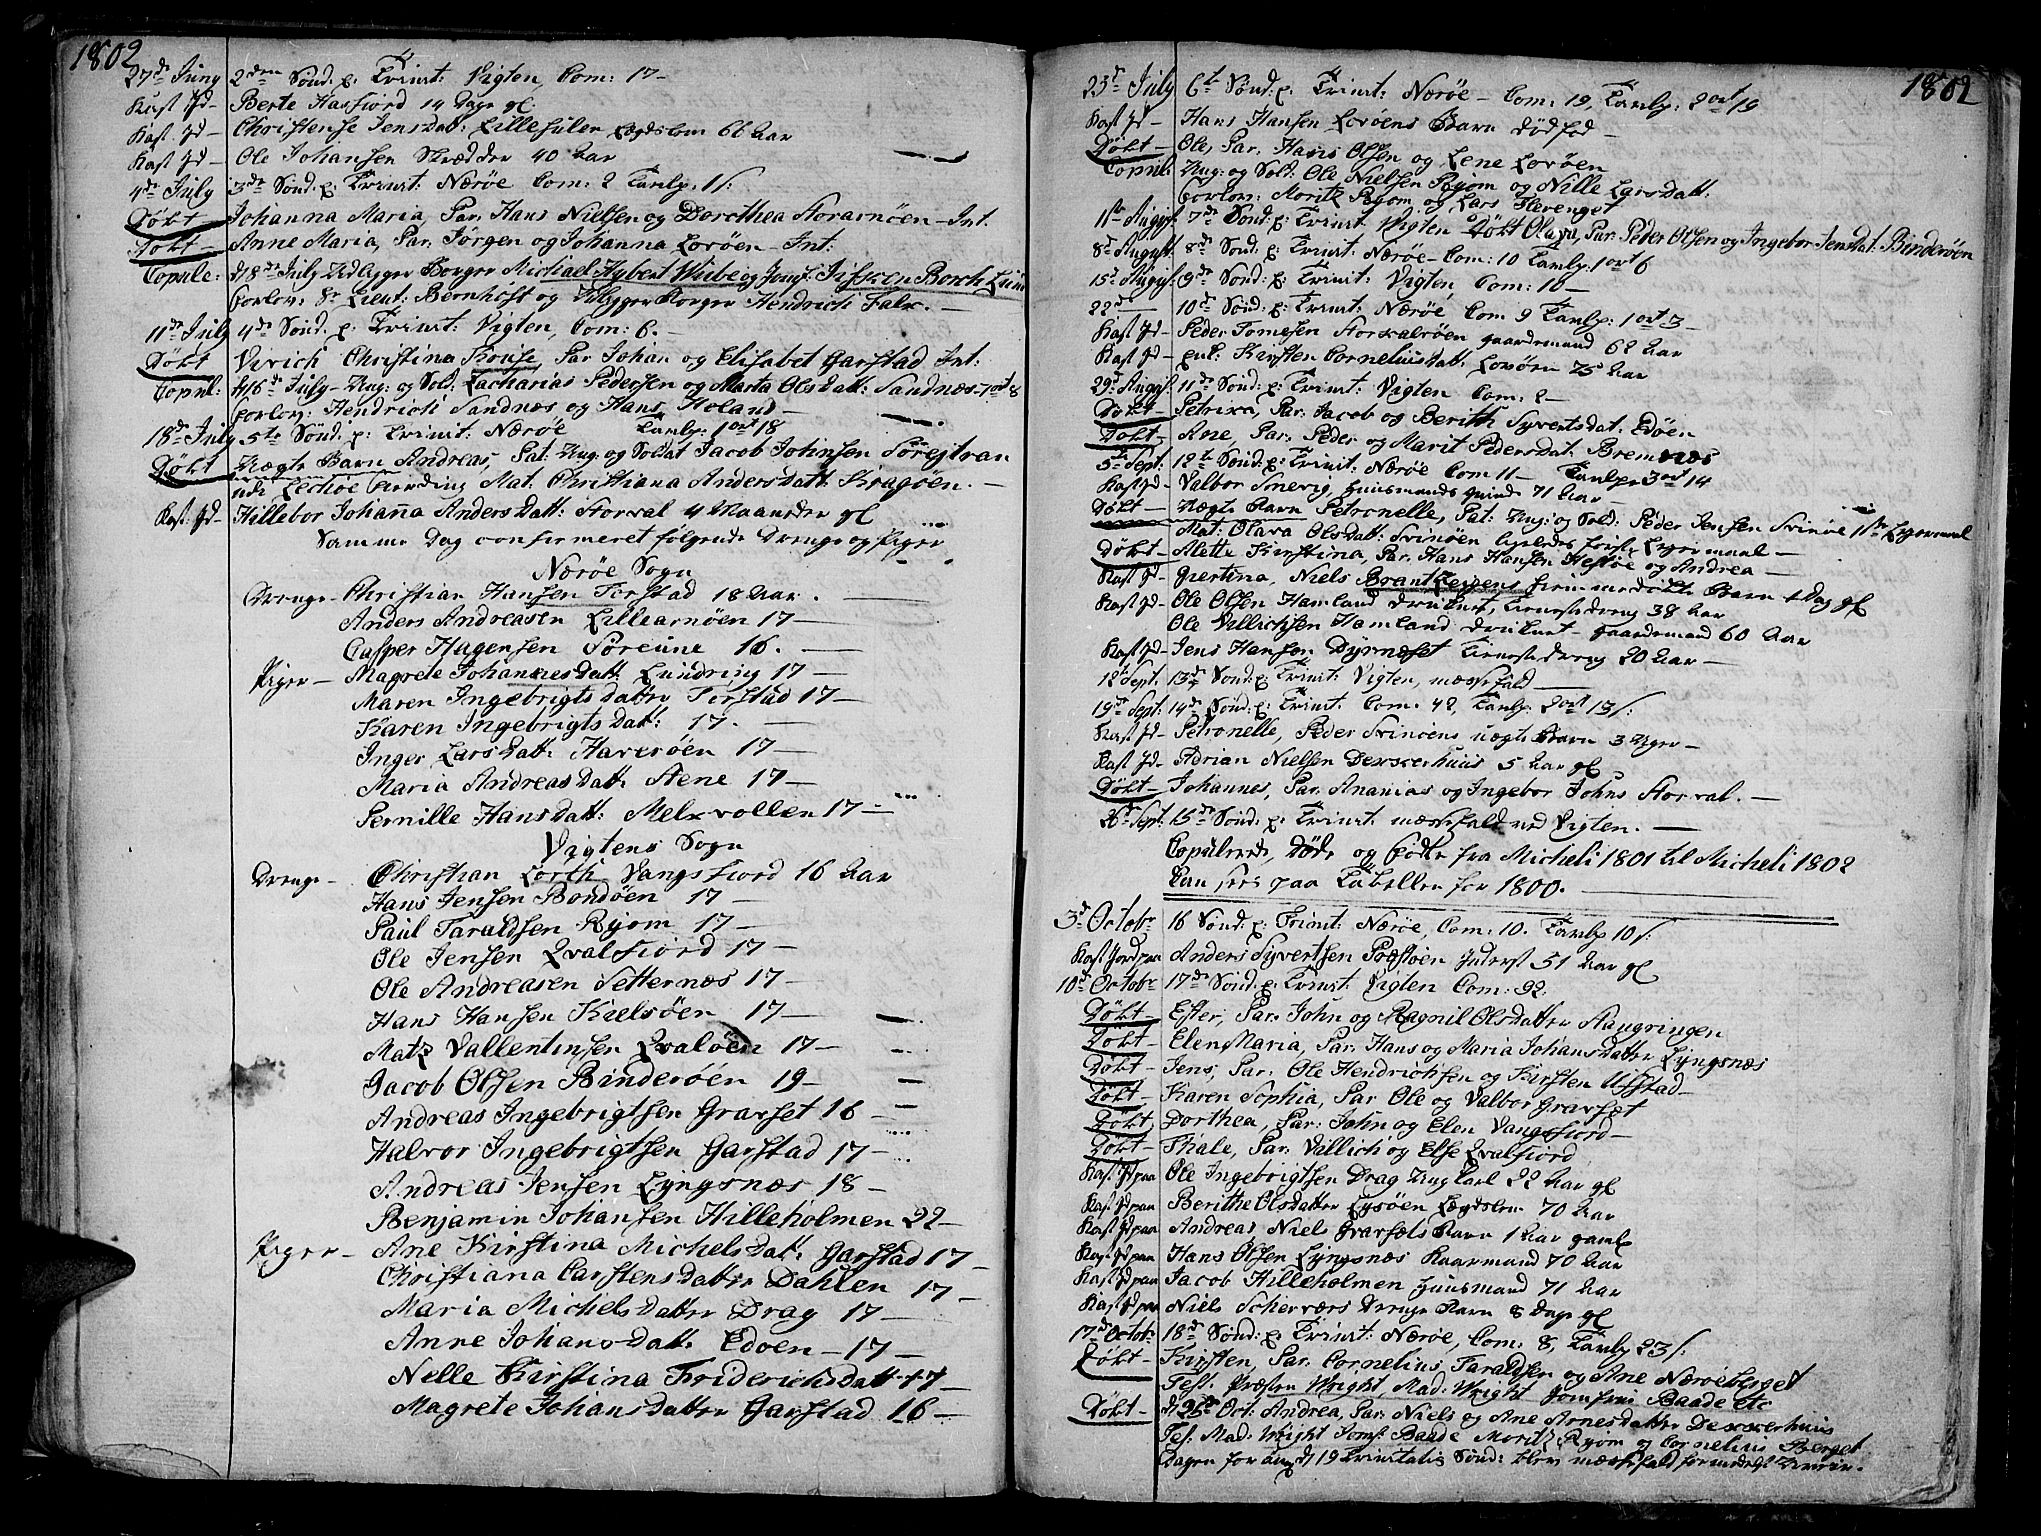 1802
27de Juny 2den Sönd: p: Trinit: Vigten, Com: 17-
Kast Jd- Berte Hasfiord 14 Dage gl:
Kast Jd- Christense Jensdat: Lillesulen Lægdslem 66 Aar
Kast Jd- Ole Johansen Skrædder 40 Aar
4de July 3de Sönd: p: Trinit: Næröe Com: 2 Tavlp: 1 s:
Döbt Johanna Maria, Par: Hans Nielsen og Dorothea Storarnöen - Int.
Döbt - Anne Maria, Par: Jörgen og Johanna Lovöen - Int:
Copule: d 18de July Udligger Borger Michael Hybert Wiibe og Jomf: Borch
Forlov: Sr Lieut: Bernhoft og Udligger Borger Hendrich Falx. -
11de July 4de Sönd. p: Trinit: Vigten, Com: 6. -
Döbt Virich Christina Louise, Par Johan og Elisabet Garstad Int:
Copul: d 16de July - Ung: og Sold: Zacharias Pedersen og Marta Olsdatt: Sandnæs - 7 ort 8
Forlov: Hendrich Sandnæs og Hans Holand -
18de July 5te Sönd: p: Trinit: Næröe Tavlp: 1 ort 18
Döbt Uægte Barn Andreas, Pat: Ung: og Soldat Jacob Johnsen
udi Lechöe Fierding Mat. Christiana Andersdatt: Kragöen. -
Kast: Jd- Hillebor Johanna Andersdatt: Storval 4 Maaneder gl
Samme Dag confirmeret følgende Drenge og Piger
Næröe Sogn
Drenge - Christian Hansen Torstad 18 Aar. -
Anders Andreasen Lillearnöen 17 -
Casper Hagensen 16. -
Piger - Magrete Johannesdatt: Lundring 17 -
Maren Ingebrigtsdatter Torstad 17 -
Karen Ingebrigtsdatt: 17. -
Inger Larsdatt: Haveröen 17 -
Maria Andreasdatt: Stene 17 -
Pernille Hansdatt: Melxvollen 17 -
Vigtens Sogn
Drenge - Christian Lorth Vangsfiord 16 Aar
Hans Jensen Bondöen 17 -
Paul Taraldsen Ryom 17 -
Ole Jensen Qvalfiord 17 -
Ole Andreasen Setternæs 17 -
Hans Hansen Kielsöen 17 -
Matz Vallentinsen Qvalöen 17 -
Jacob Olsen Binderöen 19 -
Andreas Ingebrigtsen Gravset 16 -
Halvor Ingebrigtsen Garstad 17 -
Andreas Jensen Lyngsnæs 18 -
Benjamin Johansen Hilleholmen 22 -
Piger - Ane Kirstina Michelsdatt: Garstad 17 -
Christiana Carstensdatter Dahlen 17 -
Maria Michelsdatter Drag 17 -
Anne Johansdatt: Edöen - 17 -
Nelle Kirstina Friderichsdatt 17 -
Magrete Johansdatter Garstad 16 -
1802
25de July 6te Sönd: p: Trinit: Næröe - Com: 19, Tavlp: 2 ort 19
Kast Jd - Hans Hansen Lovöens Barn dödfød -
Döbt - Ole, Par: Hans Olsen og Lene Lovöen
Copul: Ung: og Sold: Ole Nielsen Ryom og Nille Larsdatt:
Forlov: Moritz Ryom og Lars Flerenget
1ste Augst: 7de Sönd: p: Trinit Vigten Döbt Olava, Par: Peder Olsen og Ingebor Jensdat: Binderöen
8de Augst 8de Sönd: p: Trinit: Næröe - Com: 10 Tavlp: 1 ort 6
15de Augst: 9de Sönd: p: Trinit: Vigten Com: 10 -
22de - 10de Sönd: p: Trinit: Næröe Com 9 Tavlp: 1 ort 3 -
Kast Jd - Peder Tomesen Storxalvöen gaardmand 62 Aar
Kast Jd - enk: Kirsten Corneliusdatt: Lovöen 75 Aar
29de Augst: 11te Sönd: p: Trinit: Vigten Com: 2 -
Döbt - Petrixa, Par: Jacob og Berith Syvertsdat: Edöen
Döbt - Ane, Par: Peder og Marit Pedersdat: Bremnæs
5te Sept: 12te Sönd: p: Trinit: Næröe Com 11 - Tavlp: 3 ort 14
Kast Jd - Valbor Smevig, Huusmands qvinde 71 Aar -
Döbt - Uægte Barn Petronelle, Pat: Ung: og Sold: Peder Jensen Svinöe 1ste Lejermaal
Mat: Olava Olsdat: Svinöen ligeledes første Lejermaal -
Döbt - Alette Kirstina, Par: Hans Hansen Hestöe og Andrea -
Kast Jd - Giertina, Niels Brant Barn 1 Dag gl
Kast Jd - Ole Olsen Hamland druknet, Tienestedreng 38 Aar
Ole Villichsen Hamland druknet - gaardmand 60 Aar
Kast Jd - Jens Hansen Dyrnæset Tienestedreng 20 Aar -
12te Sept: 13de Sönd: p: Trinit: Vigten, mæssefald -
19de Sept: 14de Sönd: p: Trinit: Com: 42, Tavlp: 2 ort 13 s:
Kast Jd - Petronelle, Peder Svinöens uægte Barn 3 Uger -
Kast Jd - Adrian Nielsen Dexxerhuus 5 Aar gl
Döbt - Johannes, Par: Ananias og Ingebor Johns Storval. -
26de Sept: 15de Sönd: p: Trinit: mæssefald ved Vigten. -
Copulerede, Døde og Fødte fra Micheli 1801 til Micheli 1802
Kan sees paa Tabellen for 1800. -
3de Octobr 16 Sönd: p: Trinit: Næröe, Com: 10. Tavlp 10 s:
Kast Jord paa Anders Syvertsen Præstöen Inderst 51 Aar gl
10de Octobr 17de Sönd: p: Trinit: Vigten Com: 92:
Döbt - Ester, Par: John og Ragnil Olsdatter Staugringen
Döbt - Elen Maria, Par: Hans og Maria Johansdatter Lyngsnæs
Döbt - Jens, Par: Ole Hendrichsen og Kirsten Ulfstad -
Döbt - Karen Sophia, Par Ole og Valbor Gravsæt
Döbt Dorthea, Par: John og Elen Vangsfiord -
Döbt - Thale, Par: Vallich og Else Qvalfiord
Kast Jd paa Ole Ingebrigtsen Drag Ung Karl 22 Aar gl
Kast Jd paa Berithe Olsdatter Lysöen Lægdslem 70 Aar
Kast Jd paa Andreas, Niels Gravsets Barn 1 Aar gaml
Kast Jd paa Hans Olsen Lyngsnæs Kaarmand 70 Aar
Kast Jd paa Jacob Hilleholmen Huusmand 71 Aar
Kast Jd paa Niels Scherværs Drenge Barn 8 Dage gl
17de Octobr 18de Sönd: p: Trinit: Næröe, Com: 8, Tavlp 23 s:
Döbt - Kirsten, Par: Cornelius Taraldsen og Ane Næröeberget
Test: Præsten Wright, Mad: Wright Jomfrue Baade etc
Döbt - d 26de Oct: Andrea, Par: Niels og Ane Arnesdatter Dexxerhuus
Tes: Mad: Wright Jomf: Baade Moritz Ryom og Cornelius Berget
Dagen 19 Trinitatis Sönd: blev mæssefald formedelst